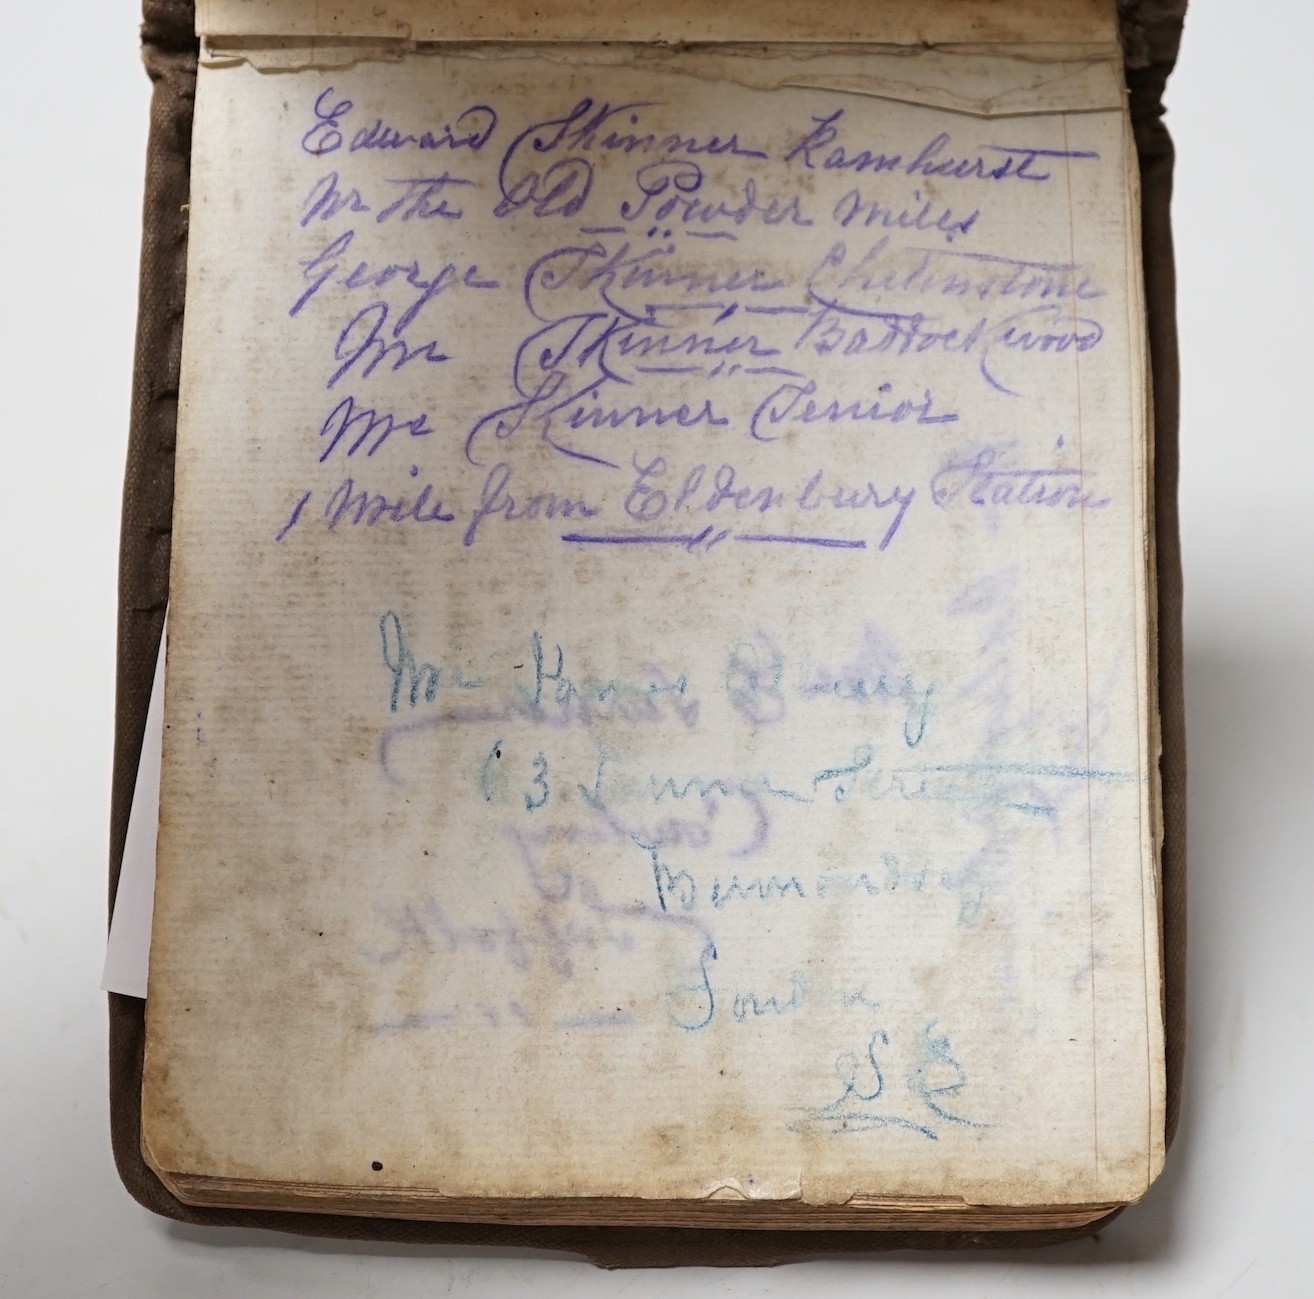 Edward Skinner Ramhurst
Nr the Old Powder Miles
George Skinner Chidenstone
Mr Skinner Bassock wood
Mr Skinner Senior
1 Mile from Eldenbury Station
Mr
63 Tanner Street
Bermondsey
London
S E
Suffolk